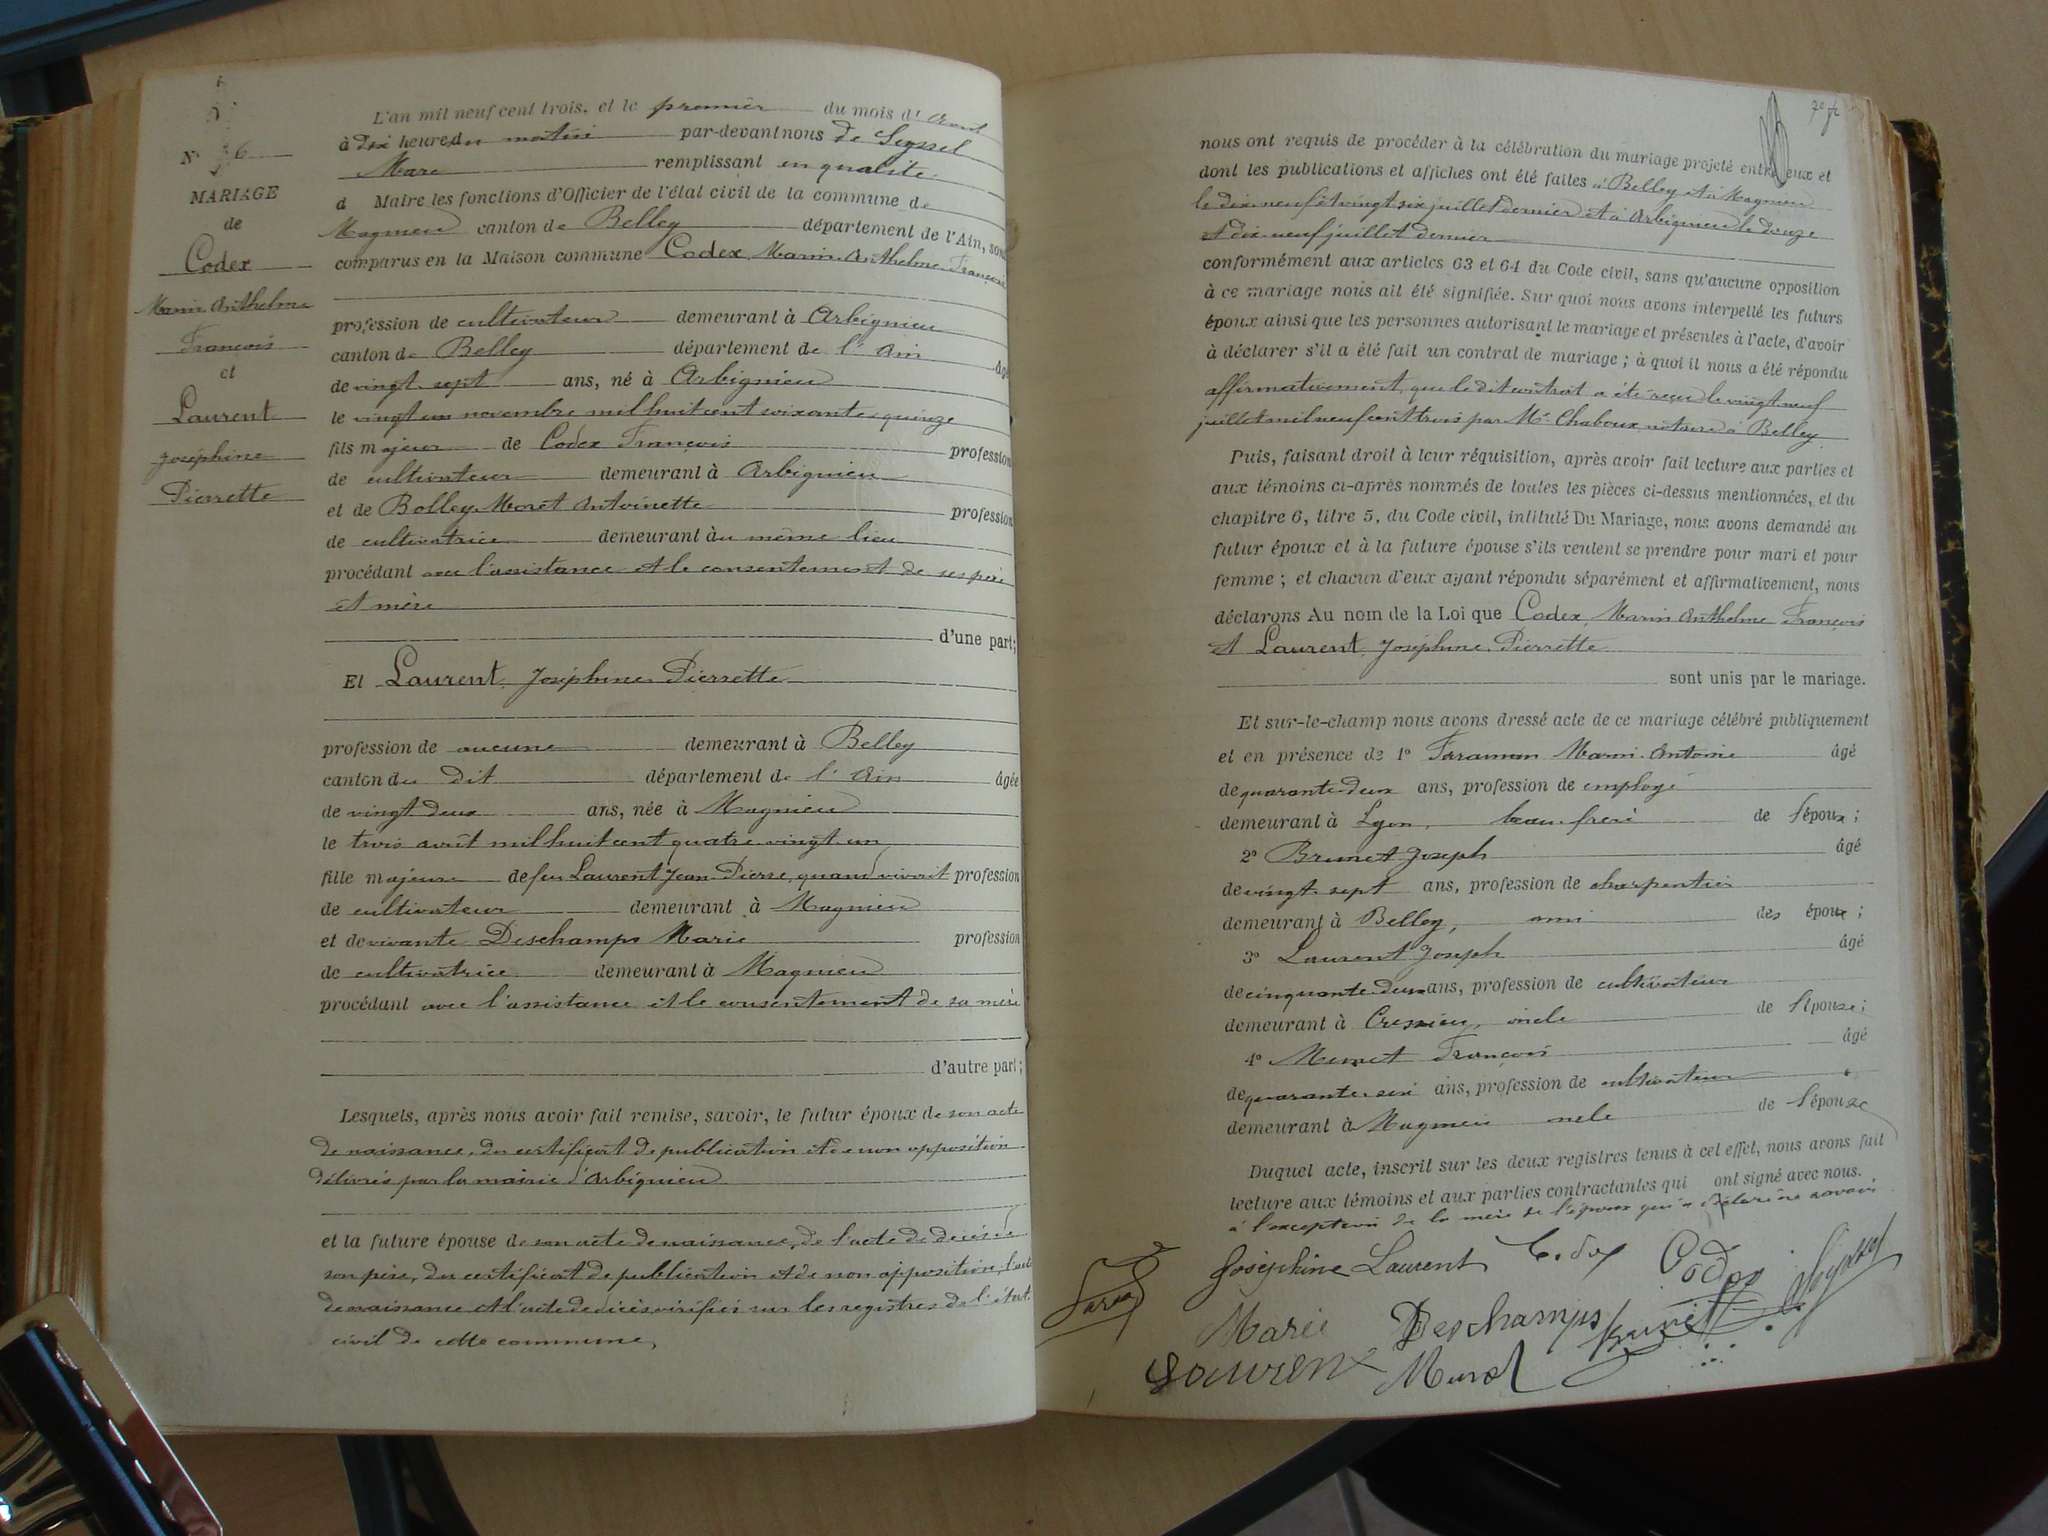 N° 6
MARIAGE
de
Codex
Marin Anthelme
François
et
Laurent
Joséphine
Pierrette
L'an mil neuf cent trois, et le premier du mois d'Août
à dix heures du matin par-devant nous de Seyssel
Marc remplissant en qualité
d Maire les fonctions d'Officier de l'état civil de la commune de
Magnieu canton de Belley département de l'Ain, sont
comparus en la Maison commune Codex Marin Anthelme François
profession de cultivateur demeurant à Arbignieu
canton de Belley département de l'Ain âgé
de vingt sept ans, né à Arbignieu
le vingt un novembre mil huit cent soixante quinze
fils majeur de Codex François profession
de cultivateur demeurant à Arbignieu
et de Bolley Moret Antoinette profession
de cultivatrice demeurant au même lieu
procédant avec l'assistance et le consentement de ses père
et mère
d'une part;
Et Laurent Joséphine Pierrette
profession de aucune demeurant à Belley
canton du dit département de l'Ain âgée
de vingt deux ans, née à Magnieu
le trois août mil huit cent quatre vingt un
fille majeure de feu Laurent Jean Pierre, quand vivait profession
de cultivateur demeurant à Magnieu
et de vivante Deschamps Marie profession
de cultivatrice demeurant à Magnieu
procédant avec l'assistance et le consentement de sa mère
d'autre part;
Lesquels, après nous avoir fait remise, savoir, le futur époux de son acte
de naissance, du certificat de publication et de non opposition
délivrés par la mairie d'Arbignieu
et la future épouse de son acte de naissance, de l'acte de décès de
son père, du certificat de publication et de non opposition, l'acte
de naissance et l'acte de décès vérifiés sur les registres de l'état
civil de cette commune,
nous ont requis de procéder à la célébration du mariage projeté entre eux et
dont les publications et affiches ont été faites à Belley et à Magnieu
le dix neuf et vingt six juillet dernier et à Arbignieu le douze
et dix neuf juillet dernier
conformément aux articles 63 et 64 du Code civil, sans qu'aucune opposition
à ce mariage nous ait été signifiée. Sur quoi nous avons interpellé les futurs
époux ainsi que les personnes autorisant le mariage et présentes à l'acte, d'avoir
à déclarer s'il a été fait un contrat de mariage; à quoi il nous a été répondu
affirmativement, que le dit contrat a été reçu le vingt neuf
juillet mil neuf cent trois par Me Chaboux notaire à Belley
Puis, faisant droit à leur réquisition, après avoir fait lecture aux parties et
aux témoins ci-après nommés de toutes les pièces ci-dessus mentionnées, et du
chapitre 6, titre 5, du Code civil, intitulé Du Mariage, nous avons demandé au
futur époux et à la future épouse s'ils veulent se prendre pour mari et pour
femme; et chacun d'eux ayant répondu séparément et affirmativement, nous
déclarons Au nom de la Loi que Codex, Marin Anthelme François
et Laurent Joséphine Pierrette
sont unis par le mariage.
Et sur-le-champ nous avons dressé acte de ce mariage célébré publiquement
et en présence de 1° Marin Antoine âgé
de quarante deux ans, profession de employé
demeurant à Lyon, beau frère de l'époux;
2° Brunet Joseph âgé
de vingt sept ans, profession de charpentier
demeurant à Belley, ami des époux;
3° Laurent Joseph âgé
de cinquante deux ans, profession de cultivateur
demeurant à Cressieu, oncle de l'épouse;
4° François âgé
de quarante six ans, profession de cultivateur
demeurant à Magnieu oncle de l'épouse
Duquel acte, inscrit sur les deux registres tenus à cet effet, nous avons fait
lecture aux témoins et aux parties contractantes qui ont signé avec nous.
à l'exception de la mère de l'époux qui a déclaré ne savoir
Joséphine Laurent Codex Codex
Marie Deschamps Brunet
Laurent